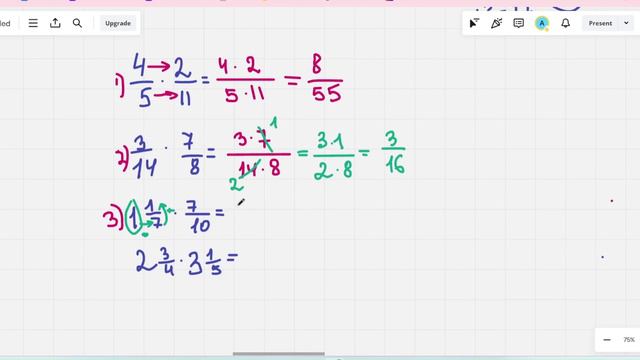 ded Upgrade A Present
1) 4/5 · 2/11 = 4·2/5·11 = 8/55
2) 3/14 · 7/8 = 3·7 1/14·8 2 = 3·1/2·8 = 3/16
3) 1 1/7 · 7/10 =
2 3/4 · 3 1/5 =
75%